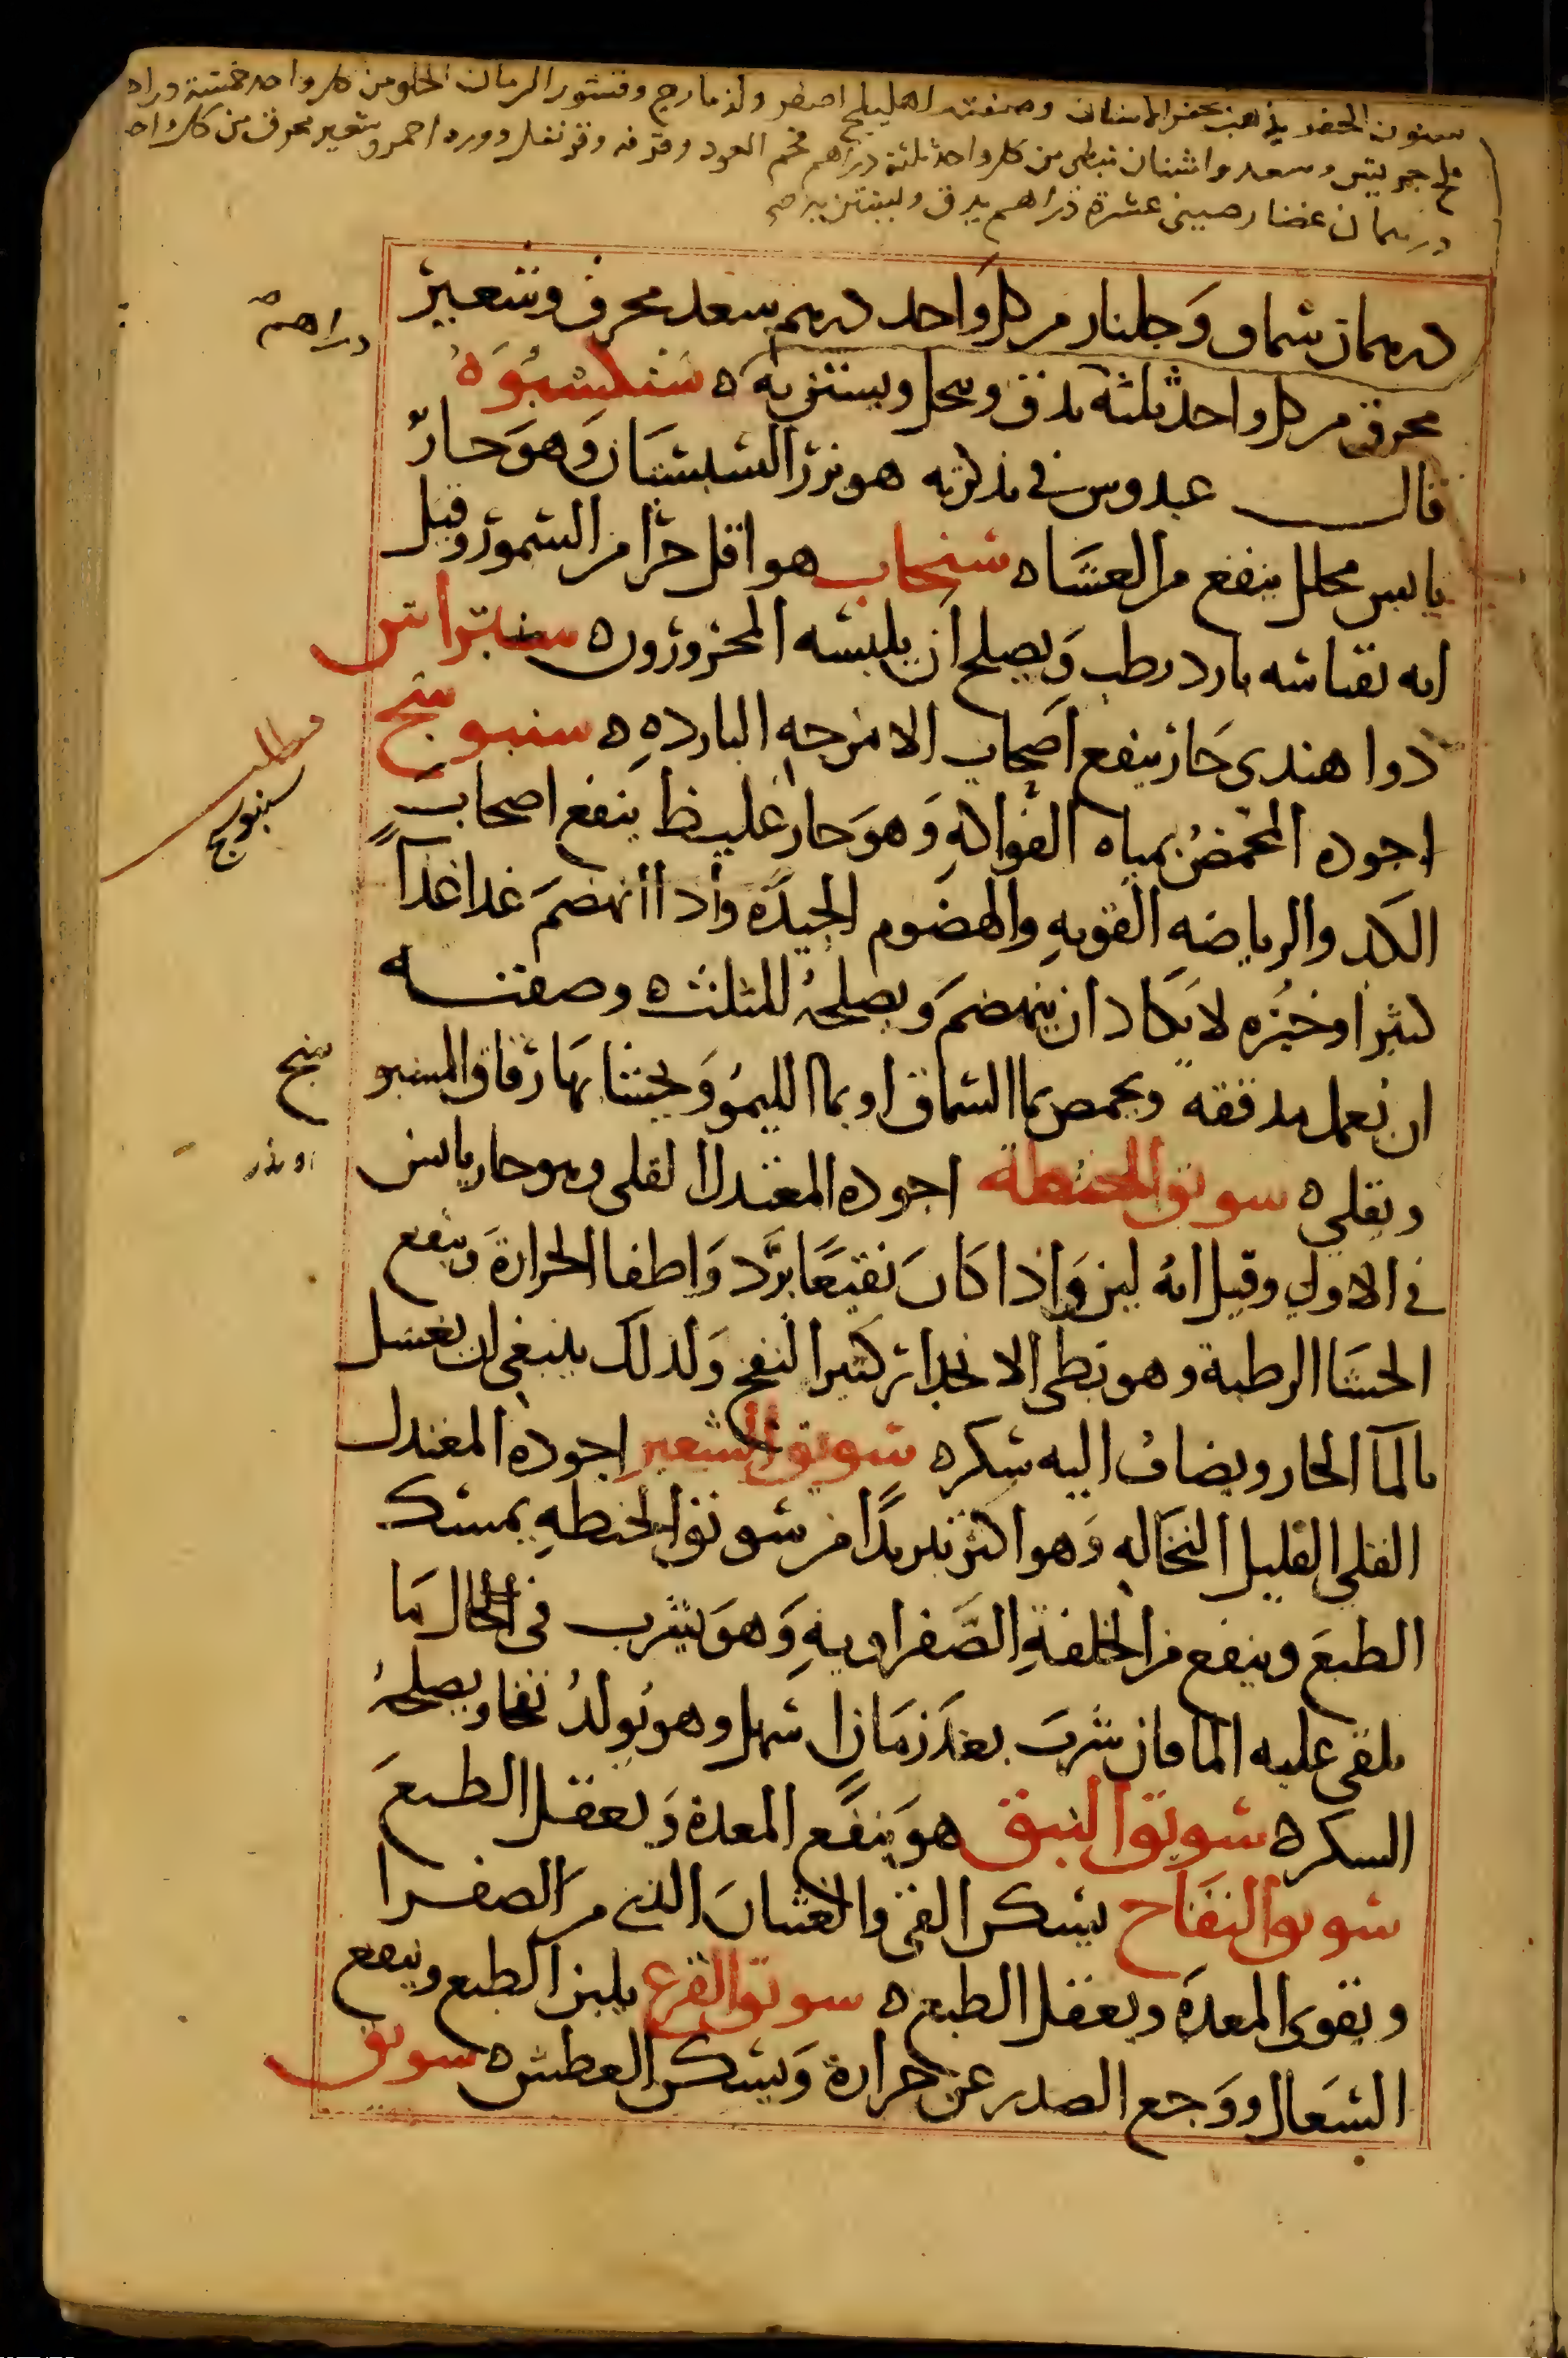 سنون الحفر يذهب بحفر الاسنان وصفته اهليلج اصفر وقشور الرمان الحلو من كل واحد خمسة دراهم
وسعد واشنان نبطى من كل واحد ثلثة دراهم فحم العود وقرفه وقرنفل وورد احمر وشعير محرق من كل واحد
درهمان غضار صينى عشرة دراهم يدق ويستن به صح
درهمان سماق وجلنار من كل واحد درهم سعد محرق وشعير
دراهم
محرق من كل واحد ثلثة يدق وينخل ويستن به ه سنكسبوه
قال عبدوس في تذكرته هو بزر السبستان وهو حار
يابس محلل ينفع من العشا ه سنجاب هو اقل حرا من السمور وقيل
انه بقياسه بارد رطب ويصلح ان يلبسه المحرورون ه سنبتراتس
دوا هندى حار ينفع اصحاب الامزجه البارده ه سنبوسج
مطلب
سنبوسج
اجوده المحمض بمياه الفواكه وهو حار غليظ ينفع اصحاب
الكد والرياضه القويه والهضوم الجيده واذا انهضم غذا غذآ
كثيرا وخبزه لا يكاد ان ينهضم ويصلحه المثلث ه وصفته
ان يعمل مدققه ويحمض بما السماق او بما الليمو ويحشا بها رقاق السنبو
سج
ويقلى ه سويق الحنطة اجوده المعتدل القلى وهو حار يابس
في الاولى وقيل انه لين واذا كان نقيعا برد واطفا الحرارة وينفع
الحشا الرطبة وهو بطى الانحدار كثير النفخ ولذلك ينبغى ان يغسل
بالمآ الحار ويضاف اليه سكر ه سويق الشعير اجوده المعتدل
القلى القليل النخاله وهو اكثر تبريدا من سويق الحنطه يمسك
الطبع وينفع من الخلفة الصفراويه وهو يشرب في الحال ما
يلقى عليه الما فان شرب بعد زمان اسهل وهو يولد نفخا ويصلحه
السكر ه سويق النبق هو ينفع المعدة ويعقل الطبع
سويق التفاح يسكن القى والغثيان الذي من الصفرا
ويقوى المعدة ويعقل الطبع ه سويق القرع يلين الطبع وينفع
السعال ووجع الصدر عن حرارة ويسكن العطش ه سويق